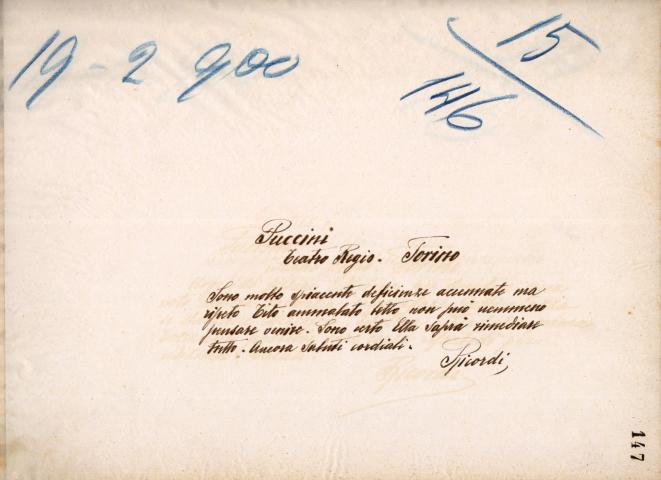 19 - 2 900
15
146
Puccini
Teatro Regio. Torino
Sono molto spiacente deficienze accennate ma
ripeto Tito ammalato letto non può nemmeno
pensare venire. Sono certo Ella saprà rimediare
tutto. Ancora saluti cordiali.
Ricordi,
147